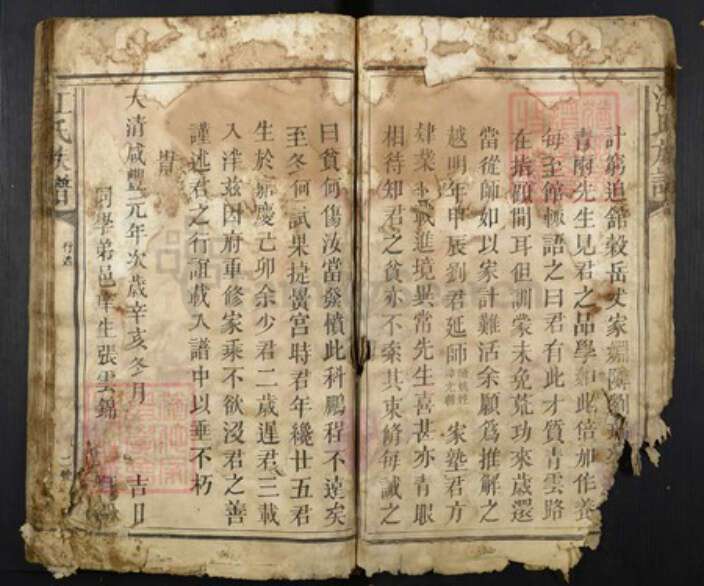 江氏族譜
計窮迫館穀岳丈家
青雨先生見君之品學如此倍加作養
每至館輒語之曰君有此才質青雲路
在指顧間耳但訓蒙未免荒功來歲還
當從師如以家計難活余願為推解之
越明年甲辰劉君延師 家塾君方
肄業 載進境異常先生喜甚亦青眼
相待知君之貧亦不索其束脩每誡之
曰貧何傷汝當發憤此科鵬程不遠矣
至冬何試果捷黌宮時君年纔廿五君
生於嘉慶己卯余少君二歲遲君三載
入泮茲因府重修家乘不欲沒君之善
謹述君之行誼載入譜中以垂不朽
時
大清咸豐元年次歲辛亥冬月 吉日
同學弟邑庠生張雲錦
江氏族譜
行述